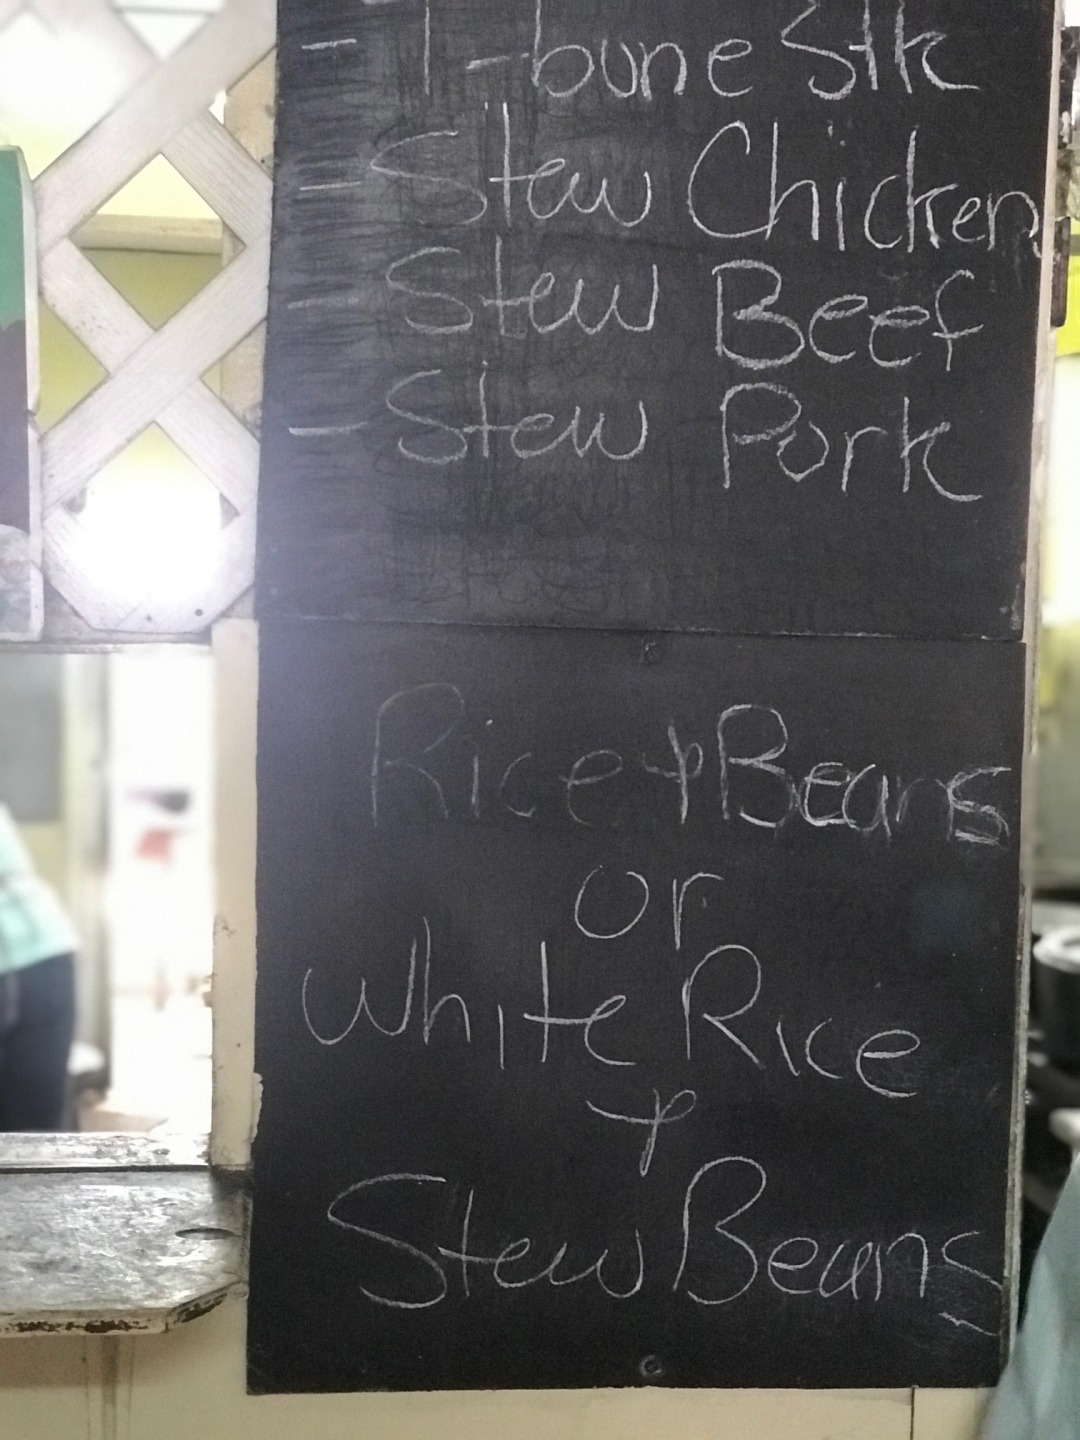 - T-bone Stk
- Stew Chicken
- Stew Beef
- Stew Pork
Rice + Beans
or
White Rice
+
Stew Beans